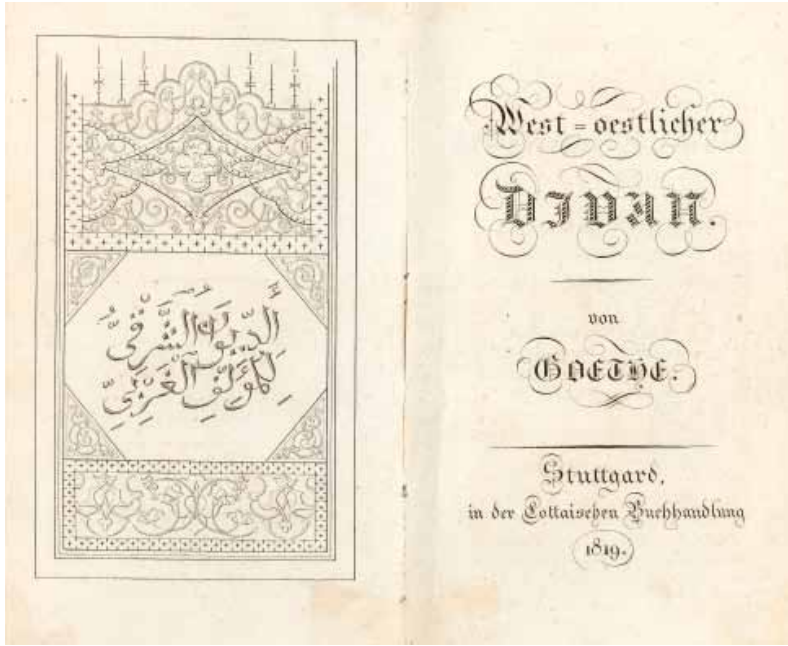 أَلدِّيوَانُ الشَّرْقِيُّ
لِلْمُؤَلِّفِ الْغَرْبِيِّ
West=oestlicher
DIVAN.
von
GOETHE.
Stuttgard,
in der Cottaischen Buchhandlung
1819.